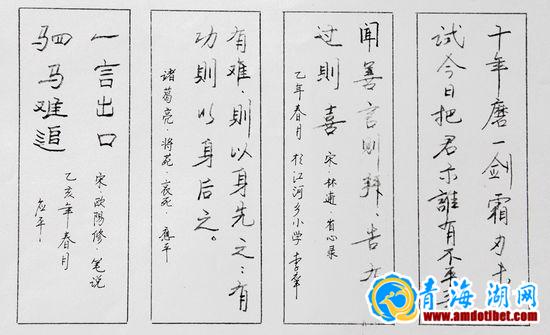 十年磨一剑霜刃未
试今日把君示誰有不平
闻善言则拜、告有
过则喜
宋·林逋·省心录
乙年春月 于江河乡小学
有难、则以身先之;有
功则以身后之。
诸葛亮·将苑·哀死 应平
一言出口
驷马难追
宋·欧阳修 笔说
乙亥年春月
应平
青海湖网
www.amdotibet.com